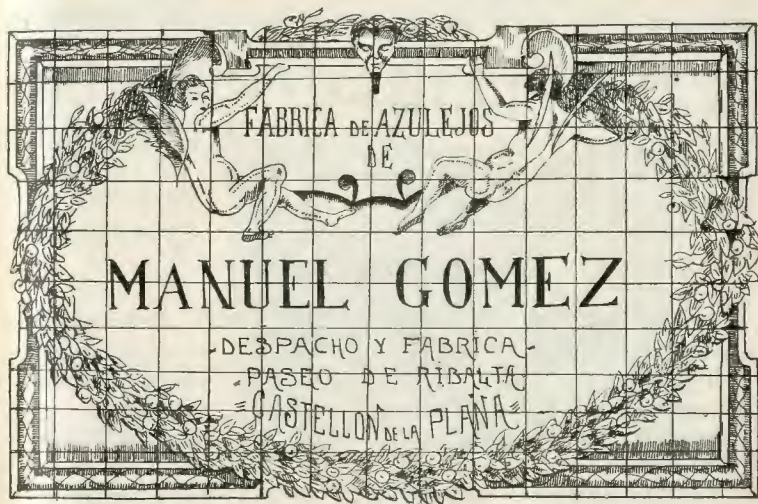 FABRICA DE AZULEJOS
DE
MANUEL GOMEZ
-DESPACHO Y FABRICA-
-PASEO DE RIBALTA
=CASTELLON DE LA PLANA=